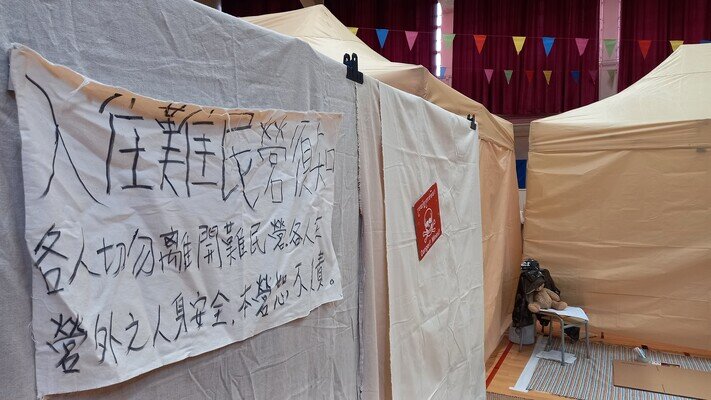 入住難民營須知
各人切勿離開難民營,各人在
營外之人身安全,本營恕不債。